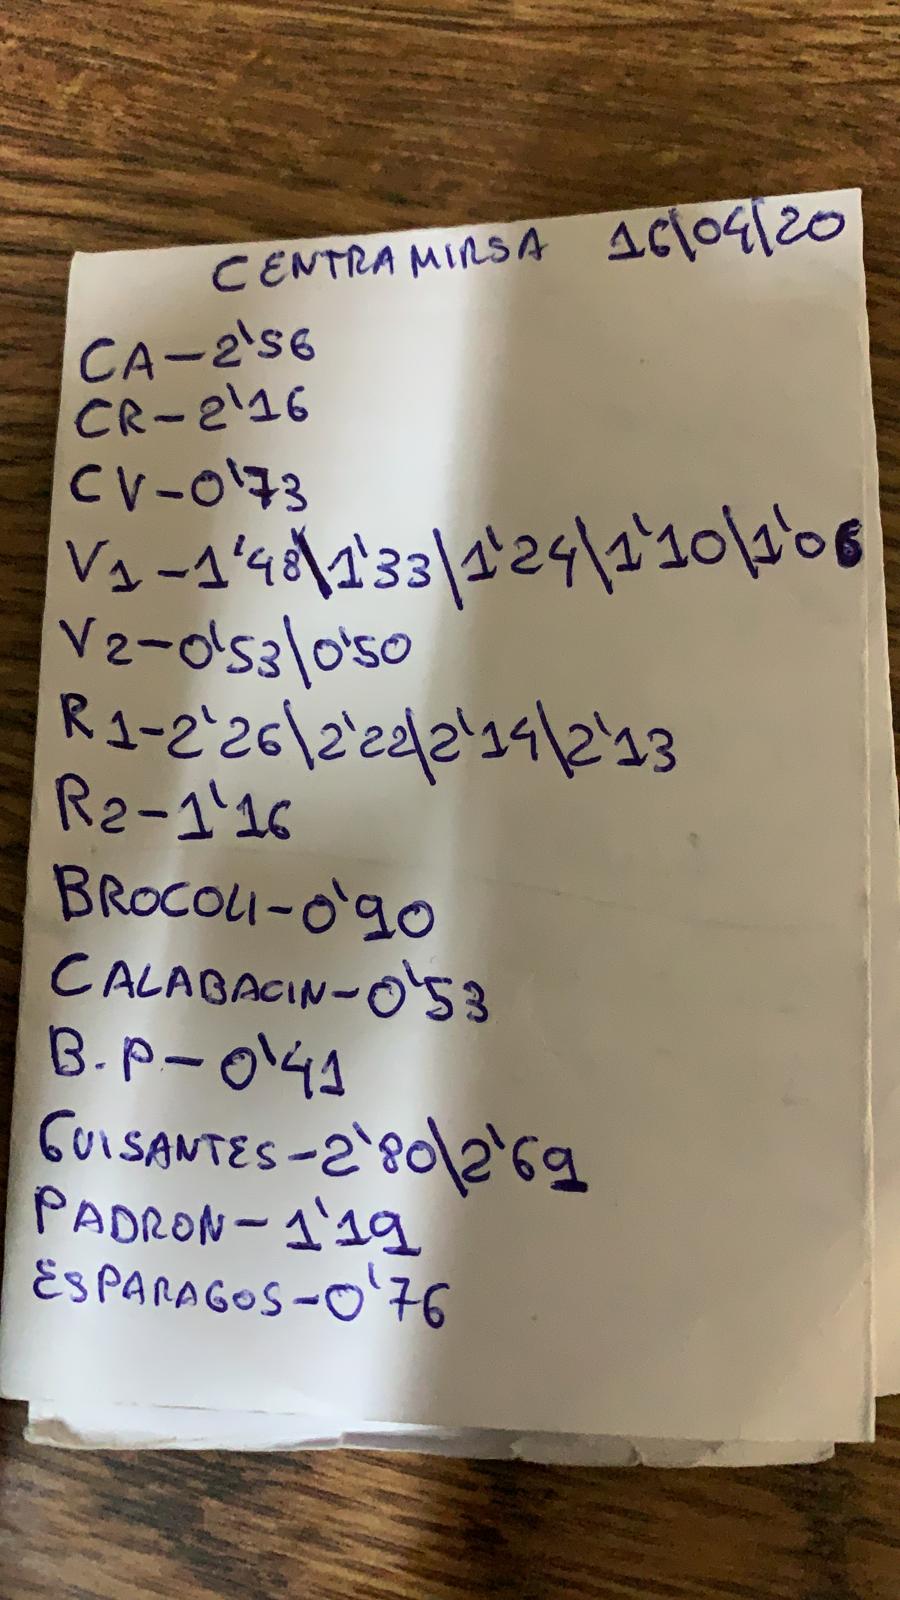 CENTRAMIRSA 16\04\20
CA-2'56
CR-2'16
CV-0'73
V1-1'48\1'33\1'24\1'10\1'06
V2-0'53\0'50
R1-2'26\2'22\2'14\2'13
R2-1'16
BROCOLI-0'90
CALABACIN-0'53
B.P-0'41
GUISANTES-2'80\2'69
PADRON-1'19
ESPARAGOS-0'76